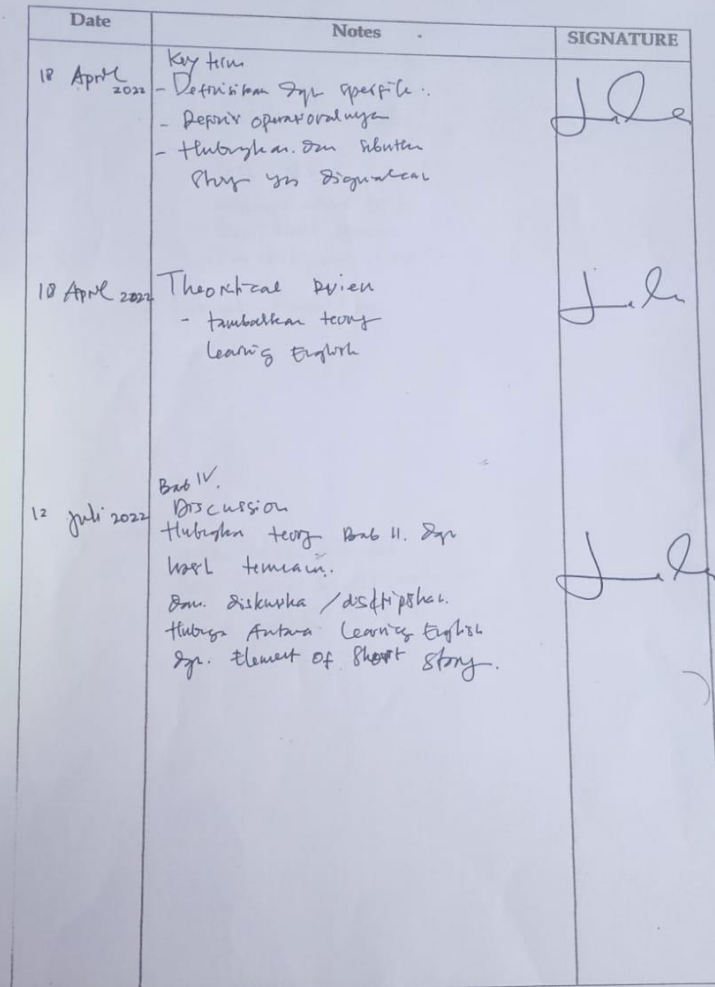 Date Notes SIGNATURE
18 April 2022
Key term
- Definisikan dgn spesifik.
- Definisi operasionalnya
- Hubungkan dan sebutkan
story yg digunakan
18 April 2022
Theoretical Review
- tambahkan teory
Learning English
12 Juli 2022
Bab IV.
Discussion
Hubungkan teory Bab II. dgn
hasil temuain.
dan. diskusika / diskripsikan.
Hubunga Antara Learning English
dgn. Element Of Short Story.